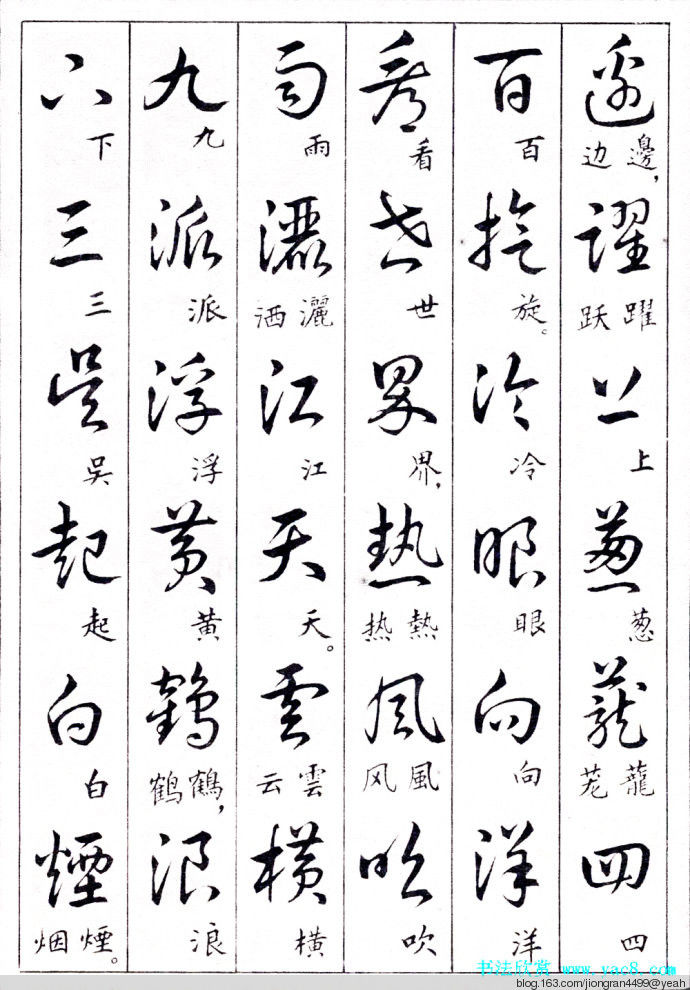 邊躍上葱蘢四
邊,边躍跃上葱蘢茏四
百旋冷眼向洋
百旋。冷眼向洋
看世界熱風吹
看世界,熱热風风吹
雨灑江天雲横
雨灑洒江天。雲云横
九派浮黄鶴浪
九派浮黄鶴,鹤浪
下三吴起白煙
下三吴起白煙。烟
书法欣赏 www.yac8.com
blog.163.com/jiongran4499@yeah